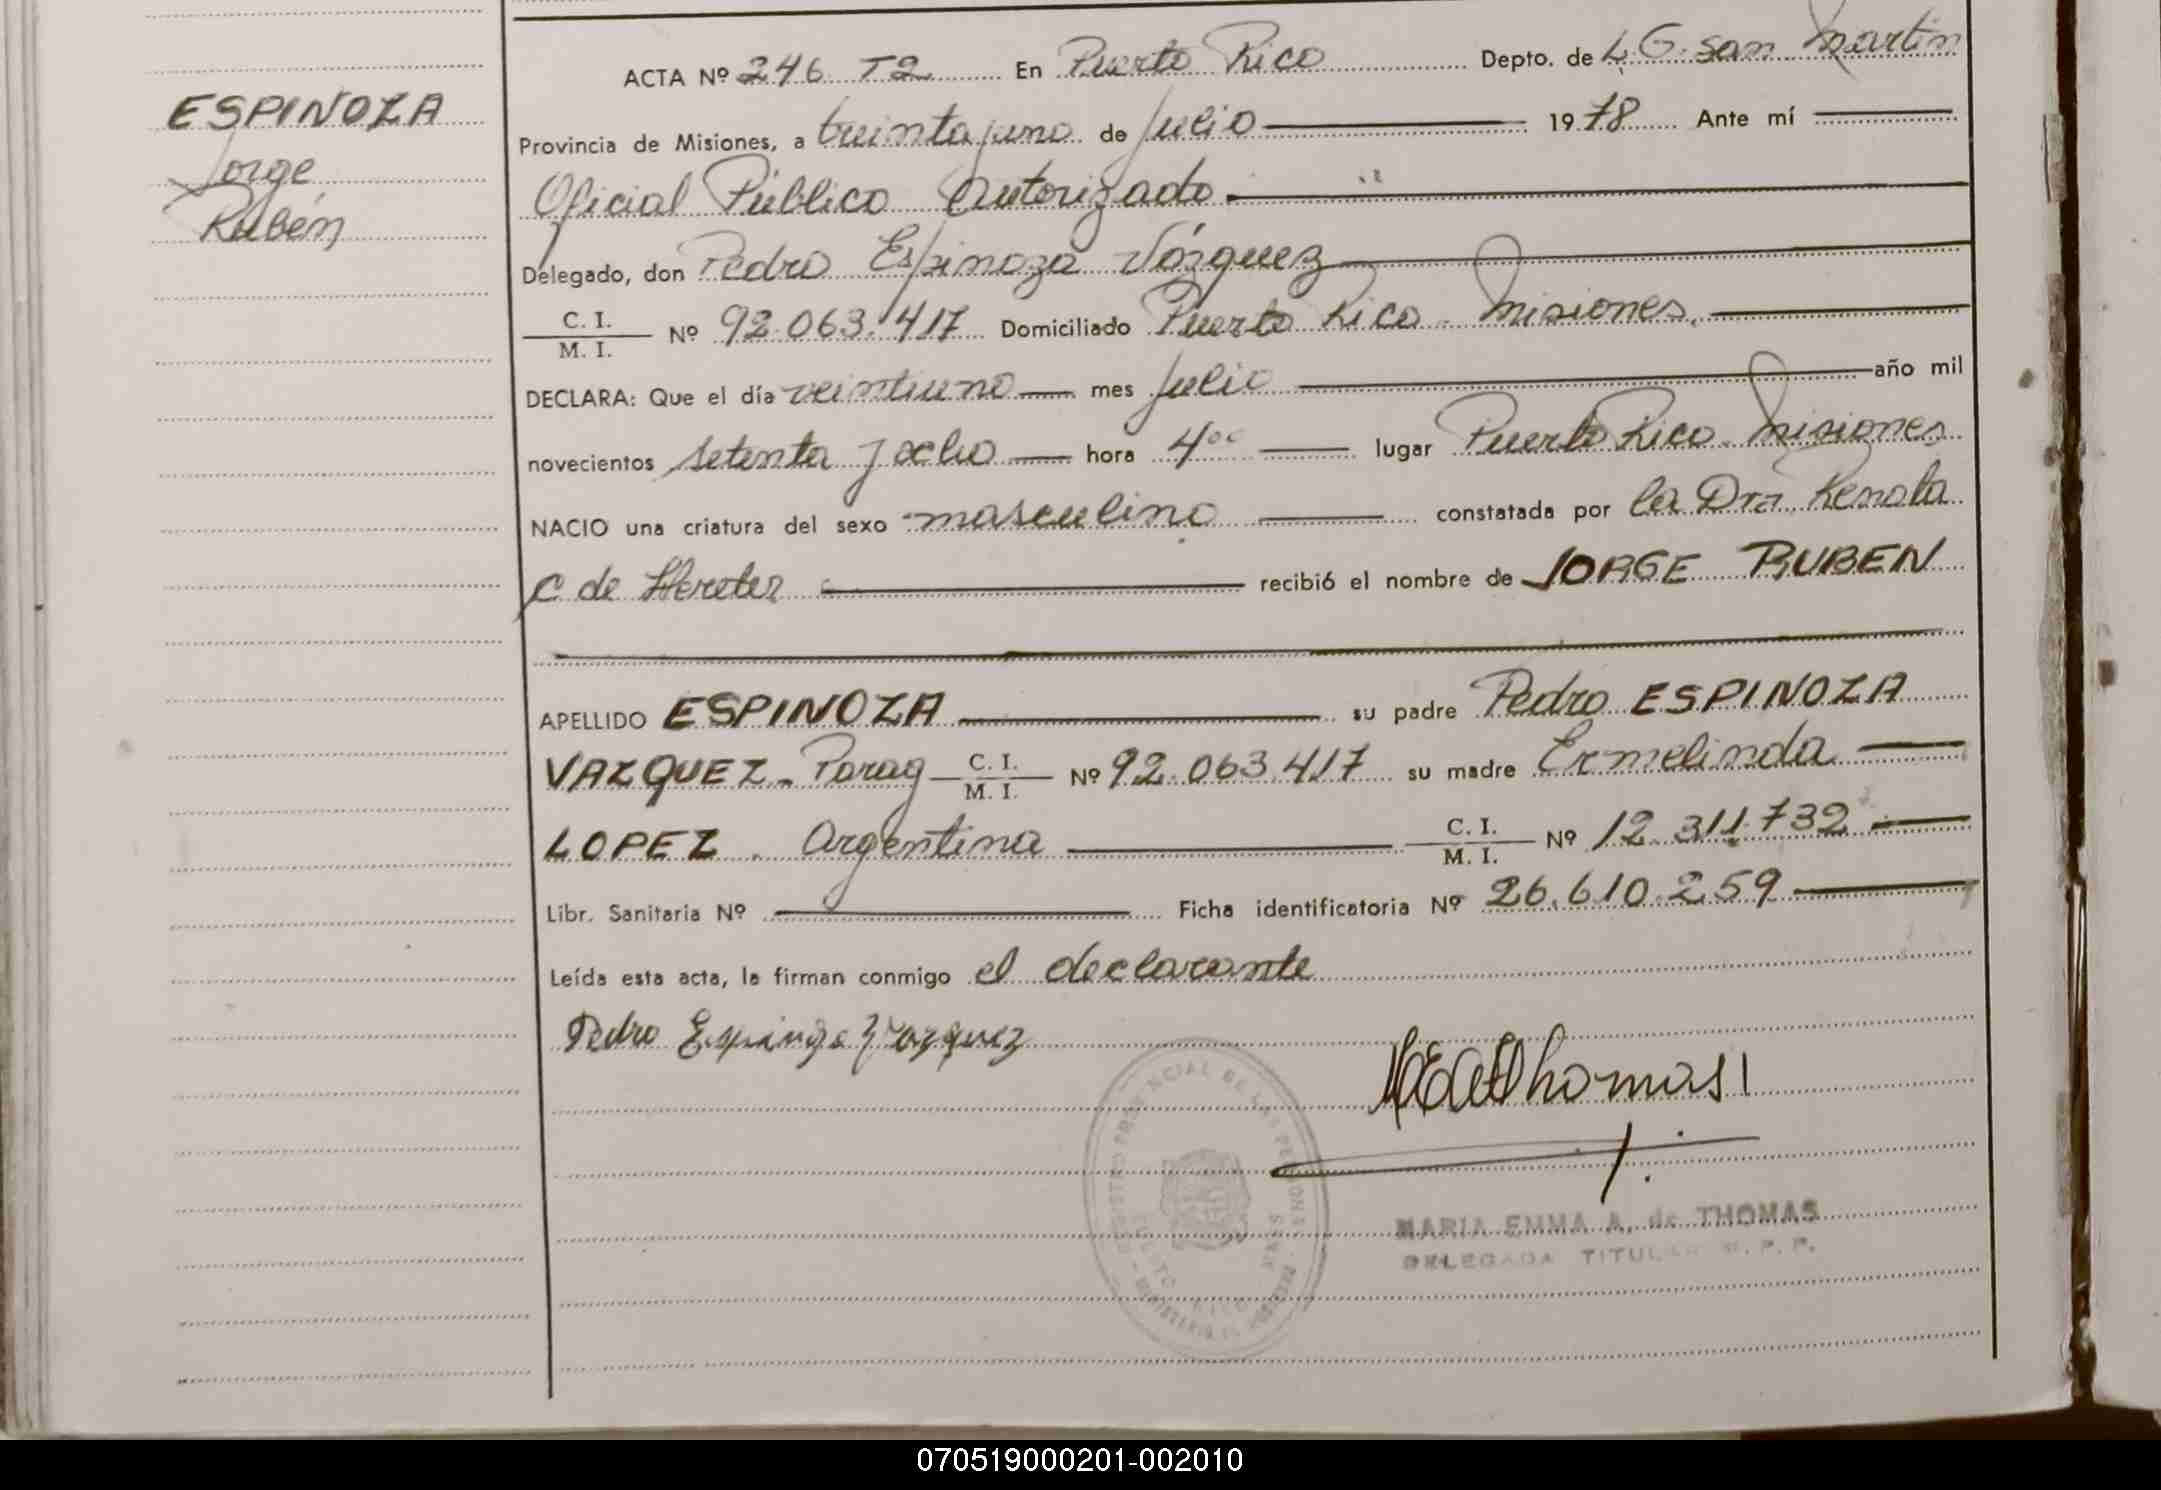 ESPINOZA
Jorge
Rubén
ACTA Nº 246 T2 En Puerto Rico Depto. de L. G. San Martin
Provincia de Misiones, a treinta y uno de Julio 1978 Ante mí
Oficial Público Autorizado
Delegado, don Pedro Espinoza Vázquez
C. I.
M. I. Nº 92.063.417 Domiciliado Puerto Rico - Misiones.
DECLARA: Que el día veintiuno mes Julio año mil
novecientos setenta y ocho hora 4⁰⁰ lugar Puerto Rico - Misiones
NACIO una criatura del sexo masculino constatada por la Dra. Renata
C de Hereter recibió el nombre de JORGE RUBEN
APELLIDO ESPINOZA su padre Pedro ESPINOZA
VAZQUEZ - Parag C. I. M. I. Nº 92.063.417 su madre Ermelinda
LOPEZ . Argentina C. I. M. I. Nº 12.311.732
Libr. Sanitaria Nº Ficha identificatoria Nº 26.610.259
Leída esta acta, la firman conmigo el declarante
Pedro Espinoza Vazquez
Thomas
REGISTRO PROVINCIAL DE LAS PERSONAS
MARIA EMMA A. de THOMAS
DELEGADA TITULAR R. P. P.
070519000201-002010